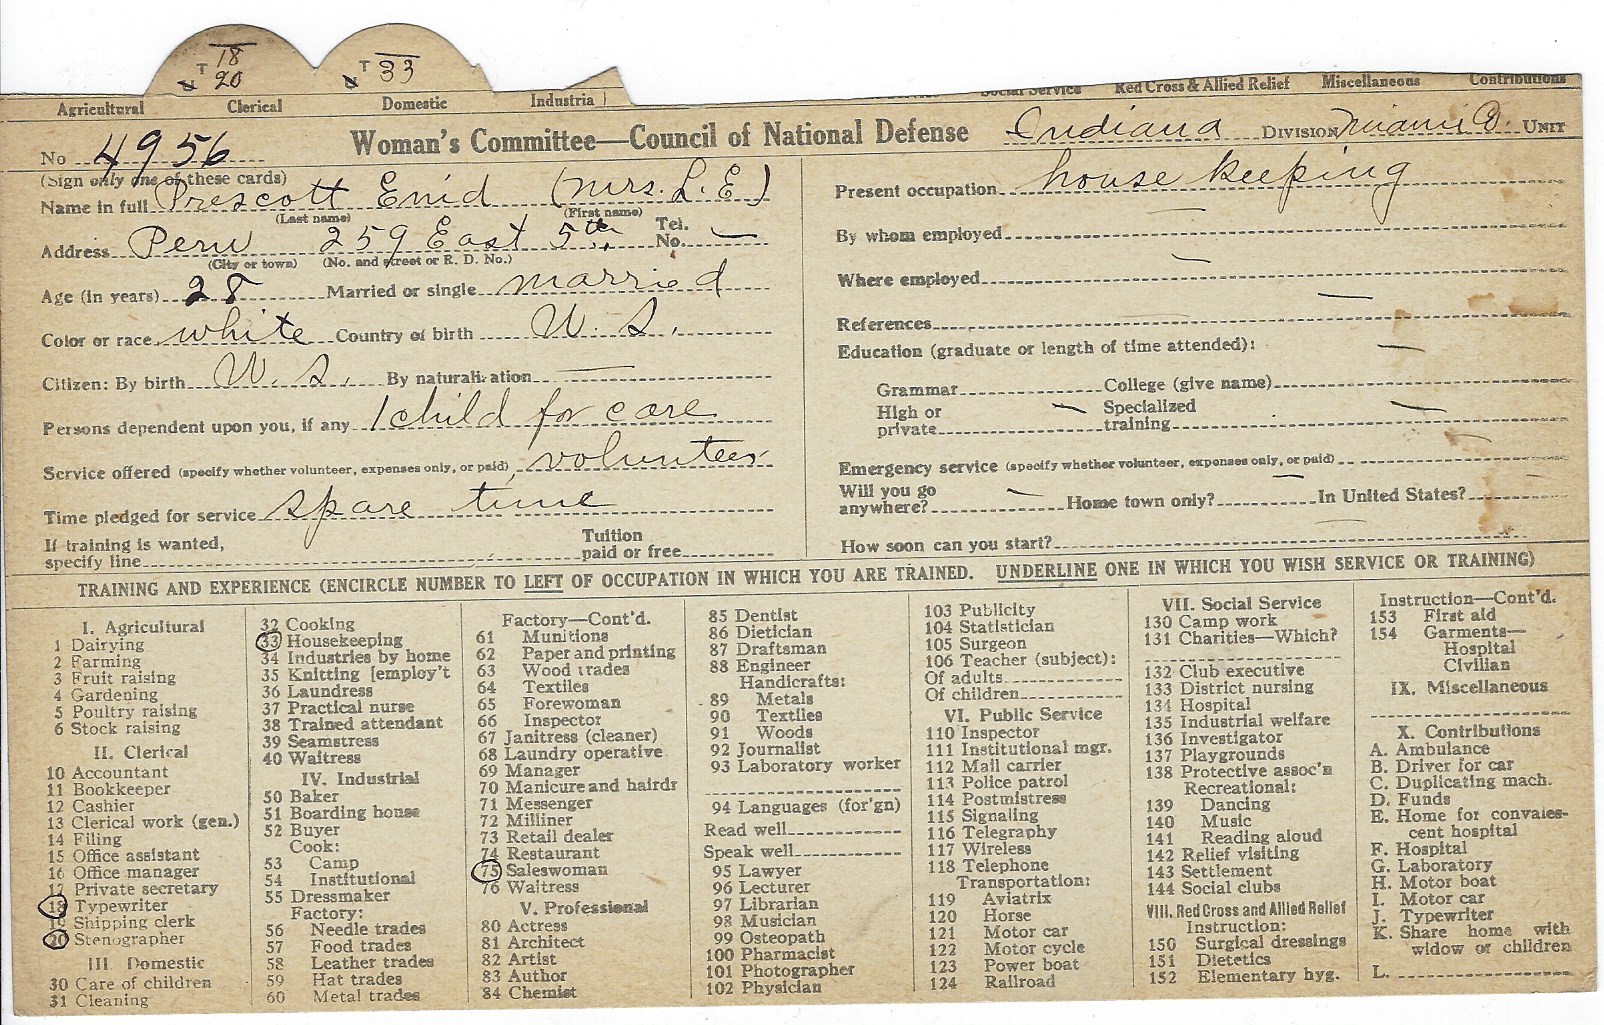 18
T 20
N
T 33
N
Agricultural Clerical Domestic Industria Social Service Red Cross & Allied Relief Miscellaneous Contributions
No 4956 Woman's Committee—Council of National Defense Indiana DIVISION Miami Co. UNIT
(Sign only one of these cards)
Name in full Prescott Enid (Mrs. L. E.)
(Last name) (First name)
Address Peru 259 East 5th. Tel. No. —
(City or town) (No. and street or R. D. No.)
Age (in years) 28 Married or single married
Color or race white Country of birth U. S.
Citizen: By birth U. S. By naturalization —
Persons dependent upon you, if any 1 child for care
Service offered (specify whether volunteer, expenses only, or paid) volunteer
Time pledged for service spare time
If training is wanted, specify line Tuition paid or free
Present occupation house keeping
By whom employed —
Where employed —
References —
Education (graduate or length of time attended): —
Grammar College (give name)
High or private — Specialized training —
Emergency service (specify whether volunteer, expenses only, or paid) —
Will you go anywhere? — Home town only? — In United States? —
How soon can you start? —
TRAINING AND EXPERIENCE (ENCIRCLE NUMBER TO LEFT OF OCCUPATION IN WHICH YOU ARE TRAINED. UNDERLINE ONE IN WHICH YOU WISH SERVICE OR TRAINING)
I. Agricultural
1 Dairying
2 Farming
3 Fruit raising
4 Gardening
5 Poultry raising
6 Stock raising
II. Clerical
10 Accountant
11 Bookkeeper
12 Cashier
13 Clerical work (gen.)
14 Filing
15 Office assistant
16 Office manager
17 Private secretary
18 Typewriter
19 Shipping clerk
20 Stenographer
III. Domestic
30 Care of children
31 Cleaning
32 Cooking
33 Housekeeping
34 Industries by home
35 Knitting [employ't
36 Laundress
37 Practical nurse
38 Trained attendant
39 Seamstress
40 Waitress
IV. Industrial
50 Baker
51 Boarding house
52 Buyer
Cook:
53 Camp
54 Institutional
55 Dressmaker
Factory:
56 Needle trades
57 Food trades
58 Leather trades
59 Hat trades
60 Metal trades
Factory—Cont'd.
61 Munitions
62 Paper and printing
63 Wood trades
64 Textiles
65 Forewoman
66 Inspector
67 Janitress (cleaner)
68 Laundry operative
69 Manager
70 Manicure and hairdr
71 Messenger
72 Milliner
73 Retail dealer
74 Restaurant
75 Saleswoman
76 Waitress
V. Professional
80 Actress
81 Architect
82 Artist
83 Author
84 Chemist
85 Dentist
86 Dietician
87 Draftsman
88 Engineer
Handicrafts:
89 Metals
90 Textiles
91 Woods
92 Journalist
93 Laboratory worker
94 Languages (for'gn)
Read well
Speak well
95 Lawyer
96 Lecturer
97 Librarian
98 Musician
99 Osteopath
100 Pharmacist
101 Photographer
102 Physician
103 Publicity
104 Statistician
105 Surgeon
106 Teacher (subject):
Of adults
Of children
VI. Public Service
110 Inspector
111 Institutional mgr.
112 Mail carrier
113 Police patrol
114 Postmistress
115 Signaling
116 Telegraphy
117 Wireless
118 Telephone
Transportation:
119 Aviatrix
120 Horse
121 Motor car
122 Motor cycle
123 Power boat
124 Railroad
VII. Social Service
130 Camp work
131 Charities—Which?
132 Club executive
133 District nursing
134 Hospital
135 Industrial welfare
136 Investigator
137 Playgrounds
138 Protective assoc'n
Recreational:
139 Dancing
140 Music
141 Reading aloud
142 Relief visiting
143 Settlement
144 Social clubs
VIII. Red Cross and Allied Relief
Instruction:
150 Surgical dressings
151 Dietetics
152 Elementary hyg.
Instruction—Cont'd.
153 First aid
154 Garments—
Hospital
Civilian
IX. Miscellaneous
X. Contributions
A. Ambulance
B. Driver for car
C. Duplicating mach.
D. Funds
E. Home for convales-
cent hospital
F. Hospital
G. Laboratory
H. Motor boat
I. Motor car
J. Typewriter
K. Share home with
widow or children
L.